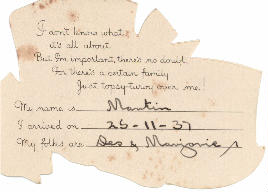 I don't know what
it's all about
But I'm important, there's no doubt
For there's a certain family
Just topsy-turvy over me.
My name is Martin
I arrived on 25-11-37
My folks are Des & Marjorie